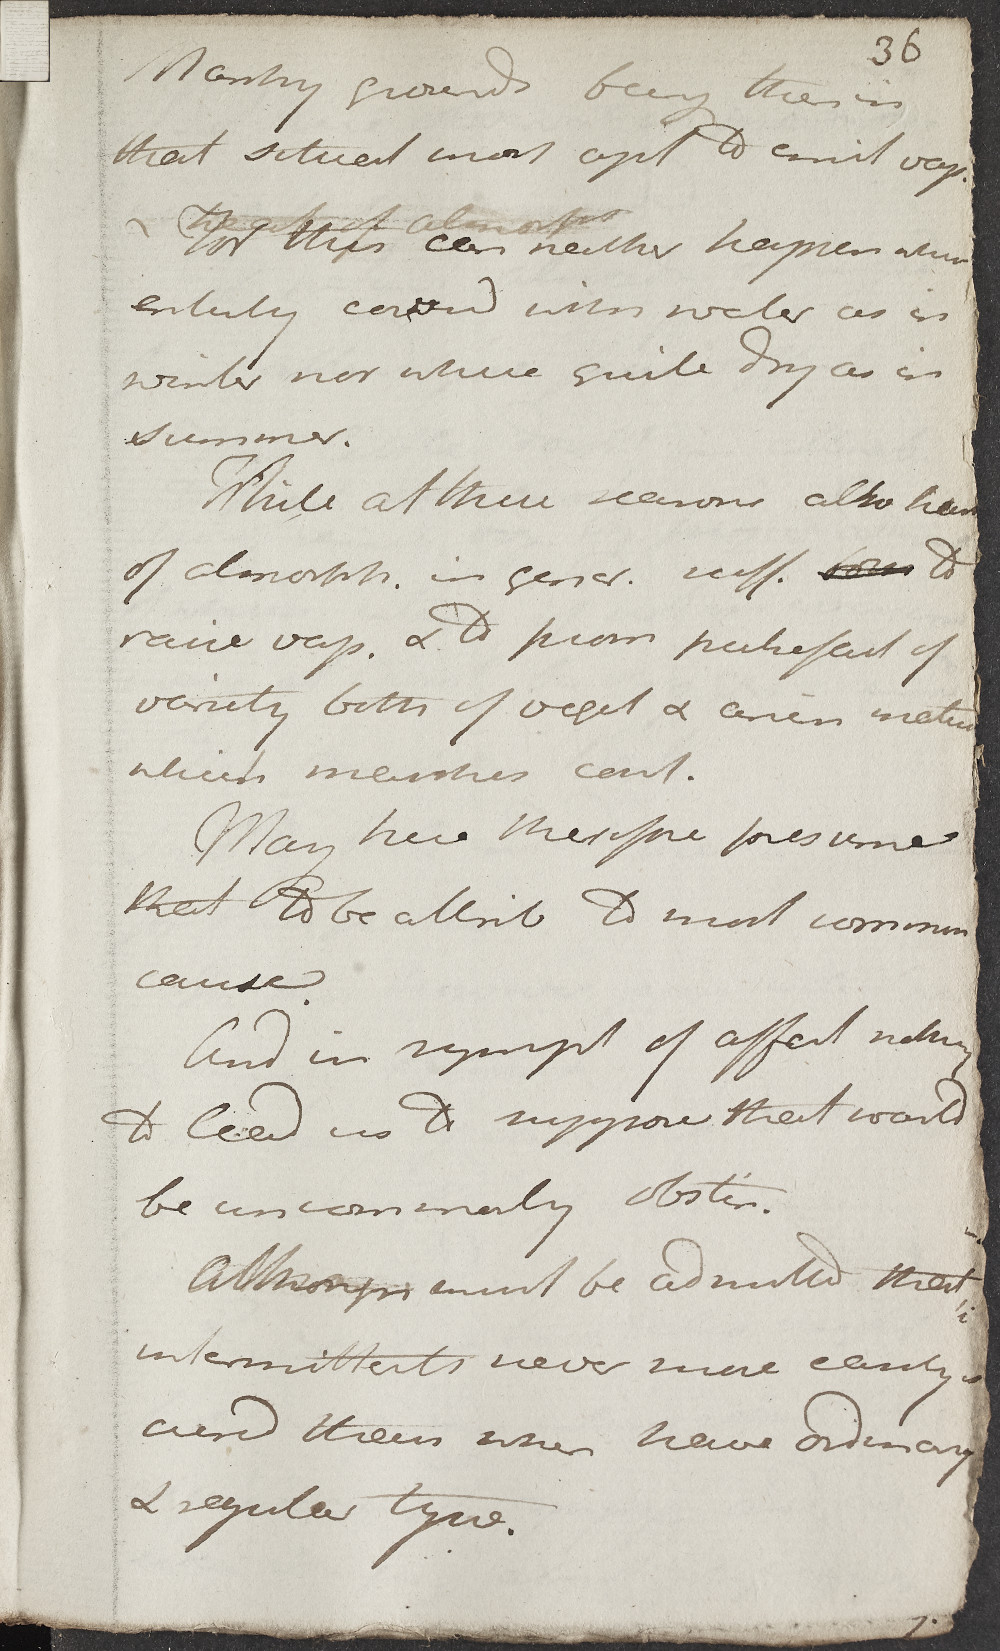 36
Marshy grounds being then in
that situat most apt to emit vap.
For this can neither happen when
entirely covered with water as in
winter nor where quite dry as in
summer.
While at these seasons also heat
of atmosph. in gener. suff. to
raise vap. & to prom putrefact of
variety both of veget & anim matter
which marshes cont.
May here therefore presume
that to be attrib to most common
cause.
And in sympt of affect nothing
to lead us to suppose that would
be uncommonly obstin.
Although must be admitted that
intermittents never more easily
cured than when have ordinary
& regular type.